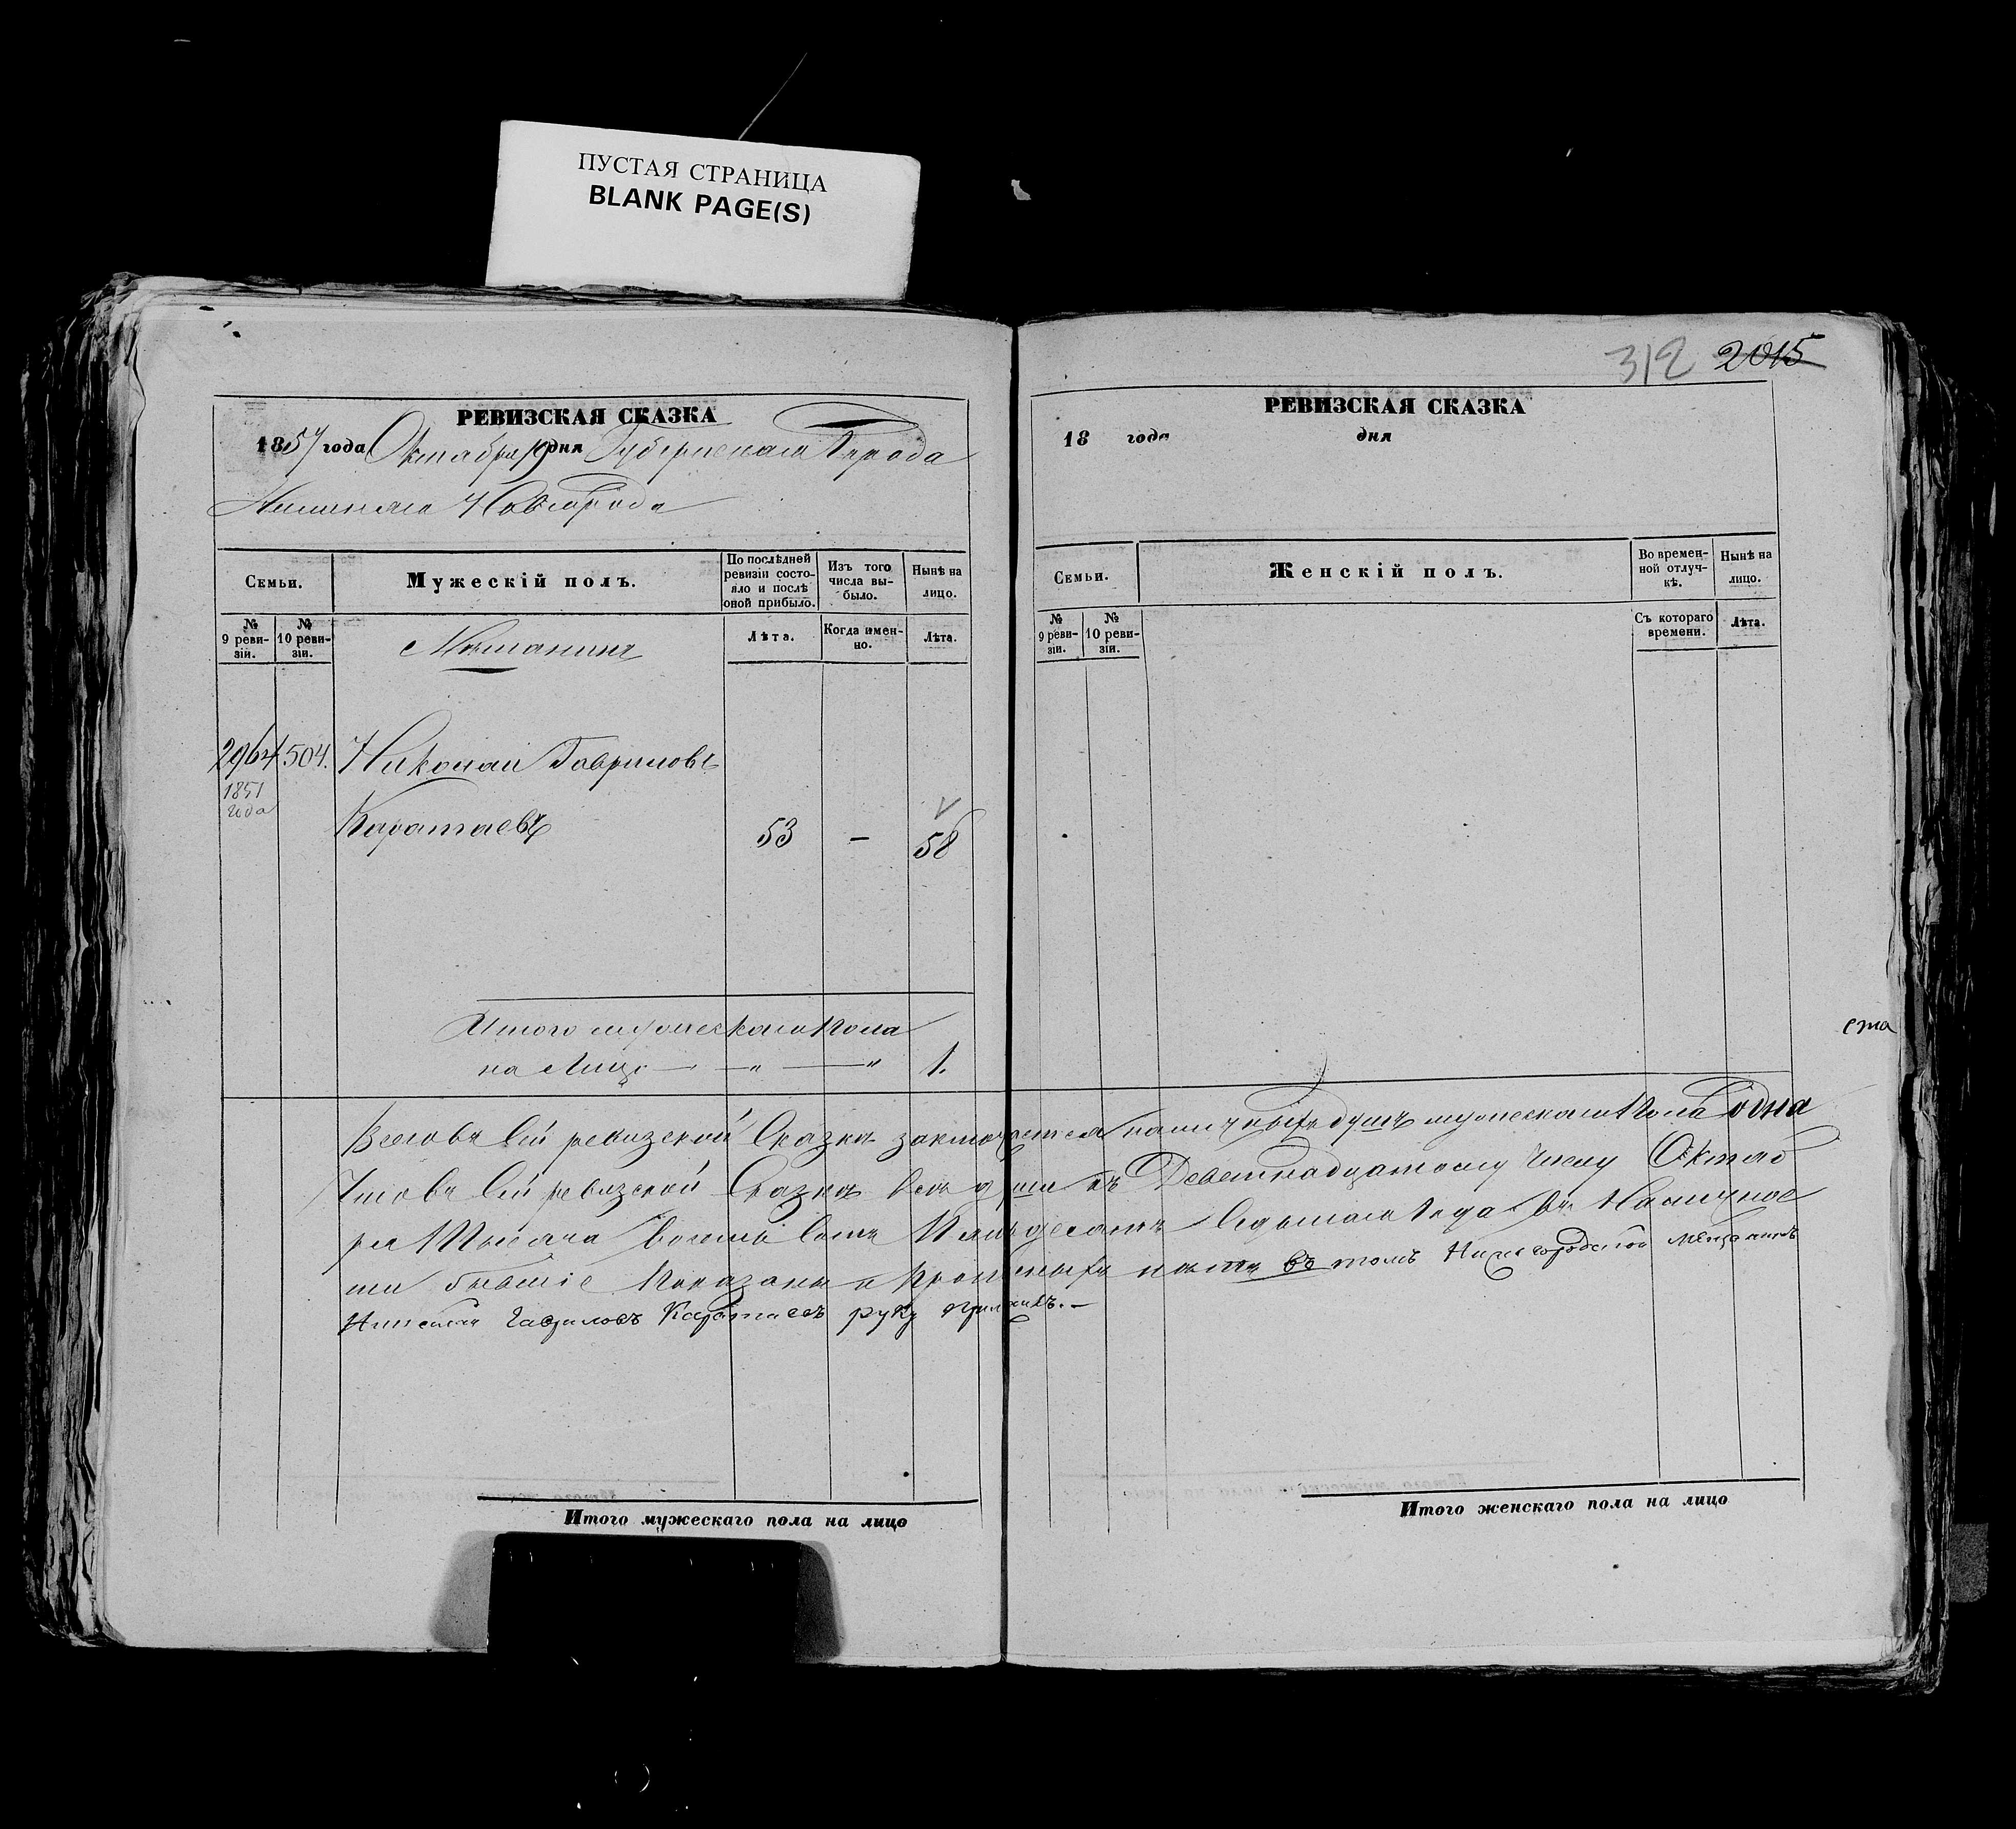 ПУСТАЯ СТРАНИЦА
BLANK PAGE(S)
РЕВИЗСКАЯ СКАЗКА
1857 года Октября 19 дня Губернскаго Города
Нижняго Новгорода
Семьи.
Мужескій полъ.
По послѣдней ревизіи состояло и послѣ оной прибыло.
Изъ того числа выбыло.
Нынѣ на лицо.
№ 9 ревизіи.
№ 10 ревизіи.
Мѣщанинъ
Лѣта.
Когда именно.
Лѣта.
2964 504. Николай Гавриловъ
1851
года
Каратаевъ 53 — 58
Итого мужескаго пола
на Лицо — — „ — „ 1.
312 2015
РЕВИЗСКАЯ СКАЗКА
18 года дня
Семьи.
Женскій полъ.
Во временной отлучкѣ.
Нынѣ на лицо.
№ 9 ревизіи.
№ 10 ревизіи.
Съ котораго времени.
Лѣта.
ета
Всего въ сей ревизской Сказкѣ заключается наличныхъ душъ мужескаго Пола одна
Что въ Сей ревизской Сказкѣ всѣ души къ Девятнадцатому Числу Октяб
ря Тысяча восемь Сотъ Пятьдесятъ Седьмаго Года въ Налично
сти бывшіе Показаны и Прописныхъ нѣтъ въ томъ Нижегородской мещанинъ
Николай Гавриловъ Каратаевъ руку приложилъ.—
Итого мужескаго пола на лицо
Итого женскаго пола на лицо